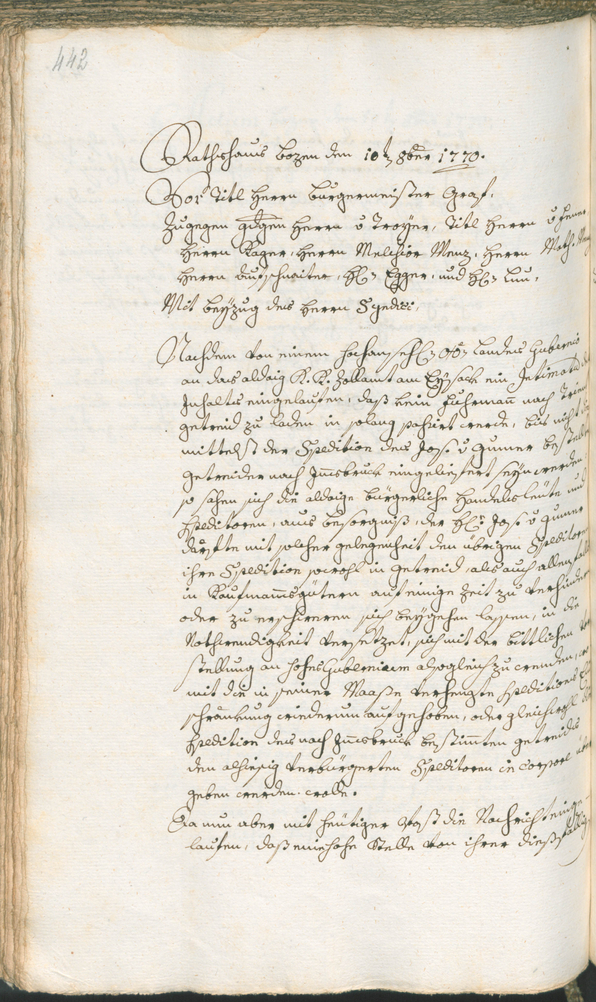 442
Rathshaus Bozen den 10t 8ber 1770.
Vor Titl Herrn Burgermeister Graf,
Zugegen Herrn v Troyer, Titl Herrn v
Herrn Rager, Herrn Melchior Menz, Herrn Math. Menz
Herrn Aufschnaiter, H: Egger, und H:
Mit beyzug des Herrn Syndici,
Nachdem von einem Landes Gubernio
an das aldaig K. K. Zollamt am Eysack ein Intimatum
Inhalts eingelaufen, daß kein Fuhrmann nach
getreid zu laden in solang pahsirt werde, bis nicht
mittelst der Spedition des Jos: v Gumer bestellte
getreider nach Innsbruck eingeliefert seyn werden
so sahen sich die aldaige burgerliche Handelsleute und
Speditoren, aus besorgniß, der H: Jos: v Gumer
darfte mit solcher gelegenheit den übrigen Speditoren
ihre Spedition sowohl in getreid als auch allenfalls
in Kaufmannsgütern auf einige Zeit zu verhindern
oder zu erschweren sich beygehen lassen, in die
Nothwendigkeit versetzet, sich mit der bittlichen
stellung an hohes Gubernium alsogleich zu wenden,
mit die in seiner Maaße verhengte Speditions
schränkung wiederum aufgehoben, oder gleichwohl die
Spedition des nach Innsbruck bestimten getreides
den alhiesig verburgerten Speditoren in Corpore über
geben werden wolle.
Da nun aber mit heutiger Post die Nachricht einge
laufen, daß eine hohe Stelle von ihrer diesfällig